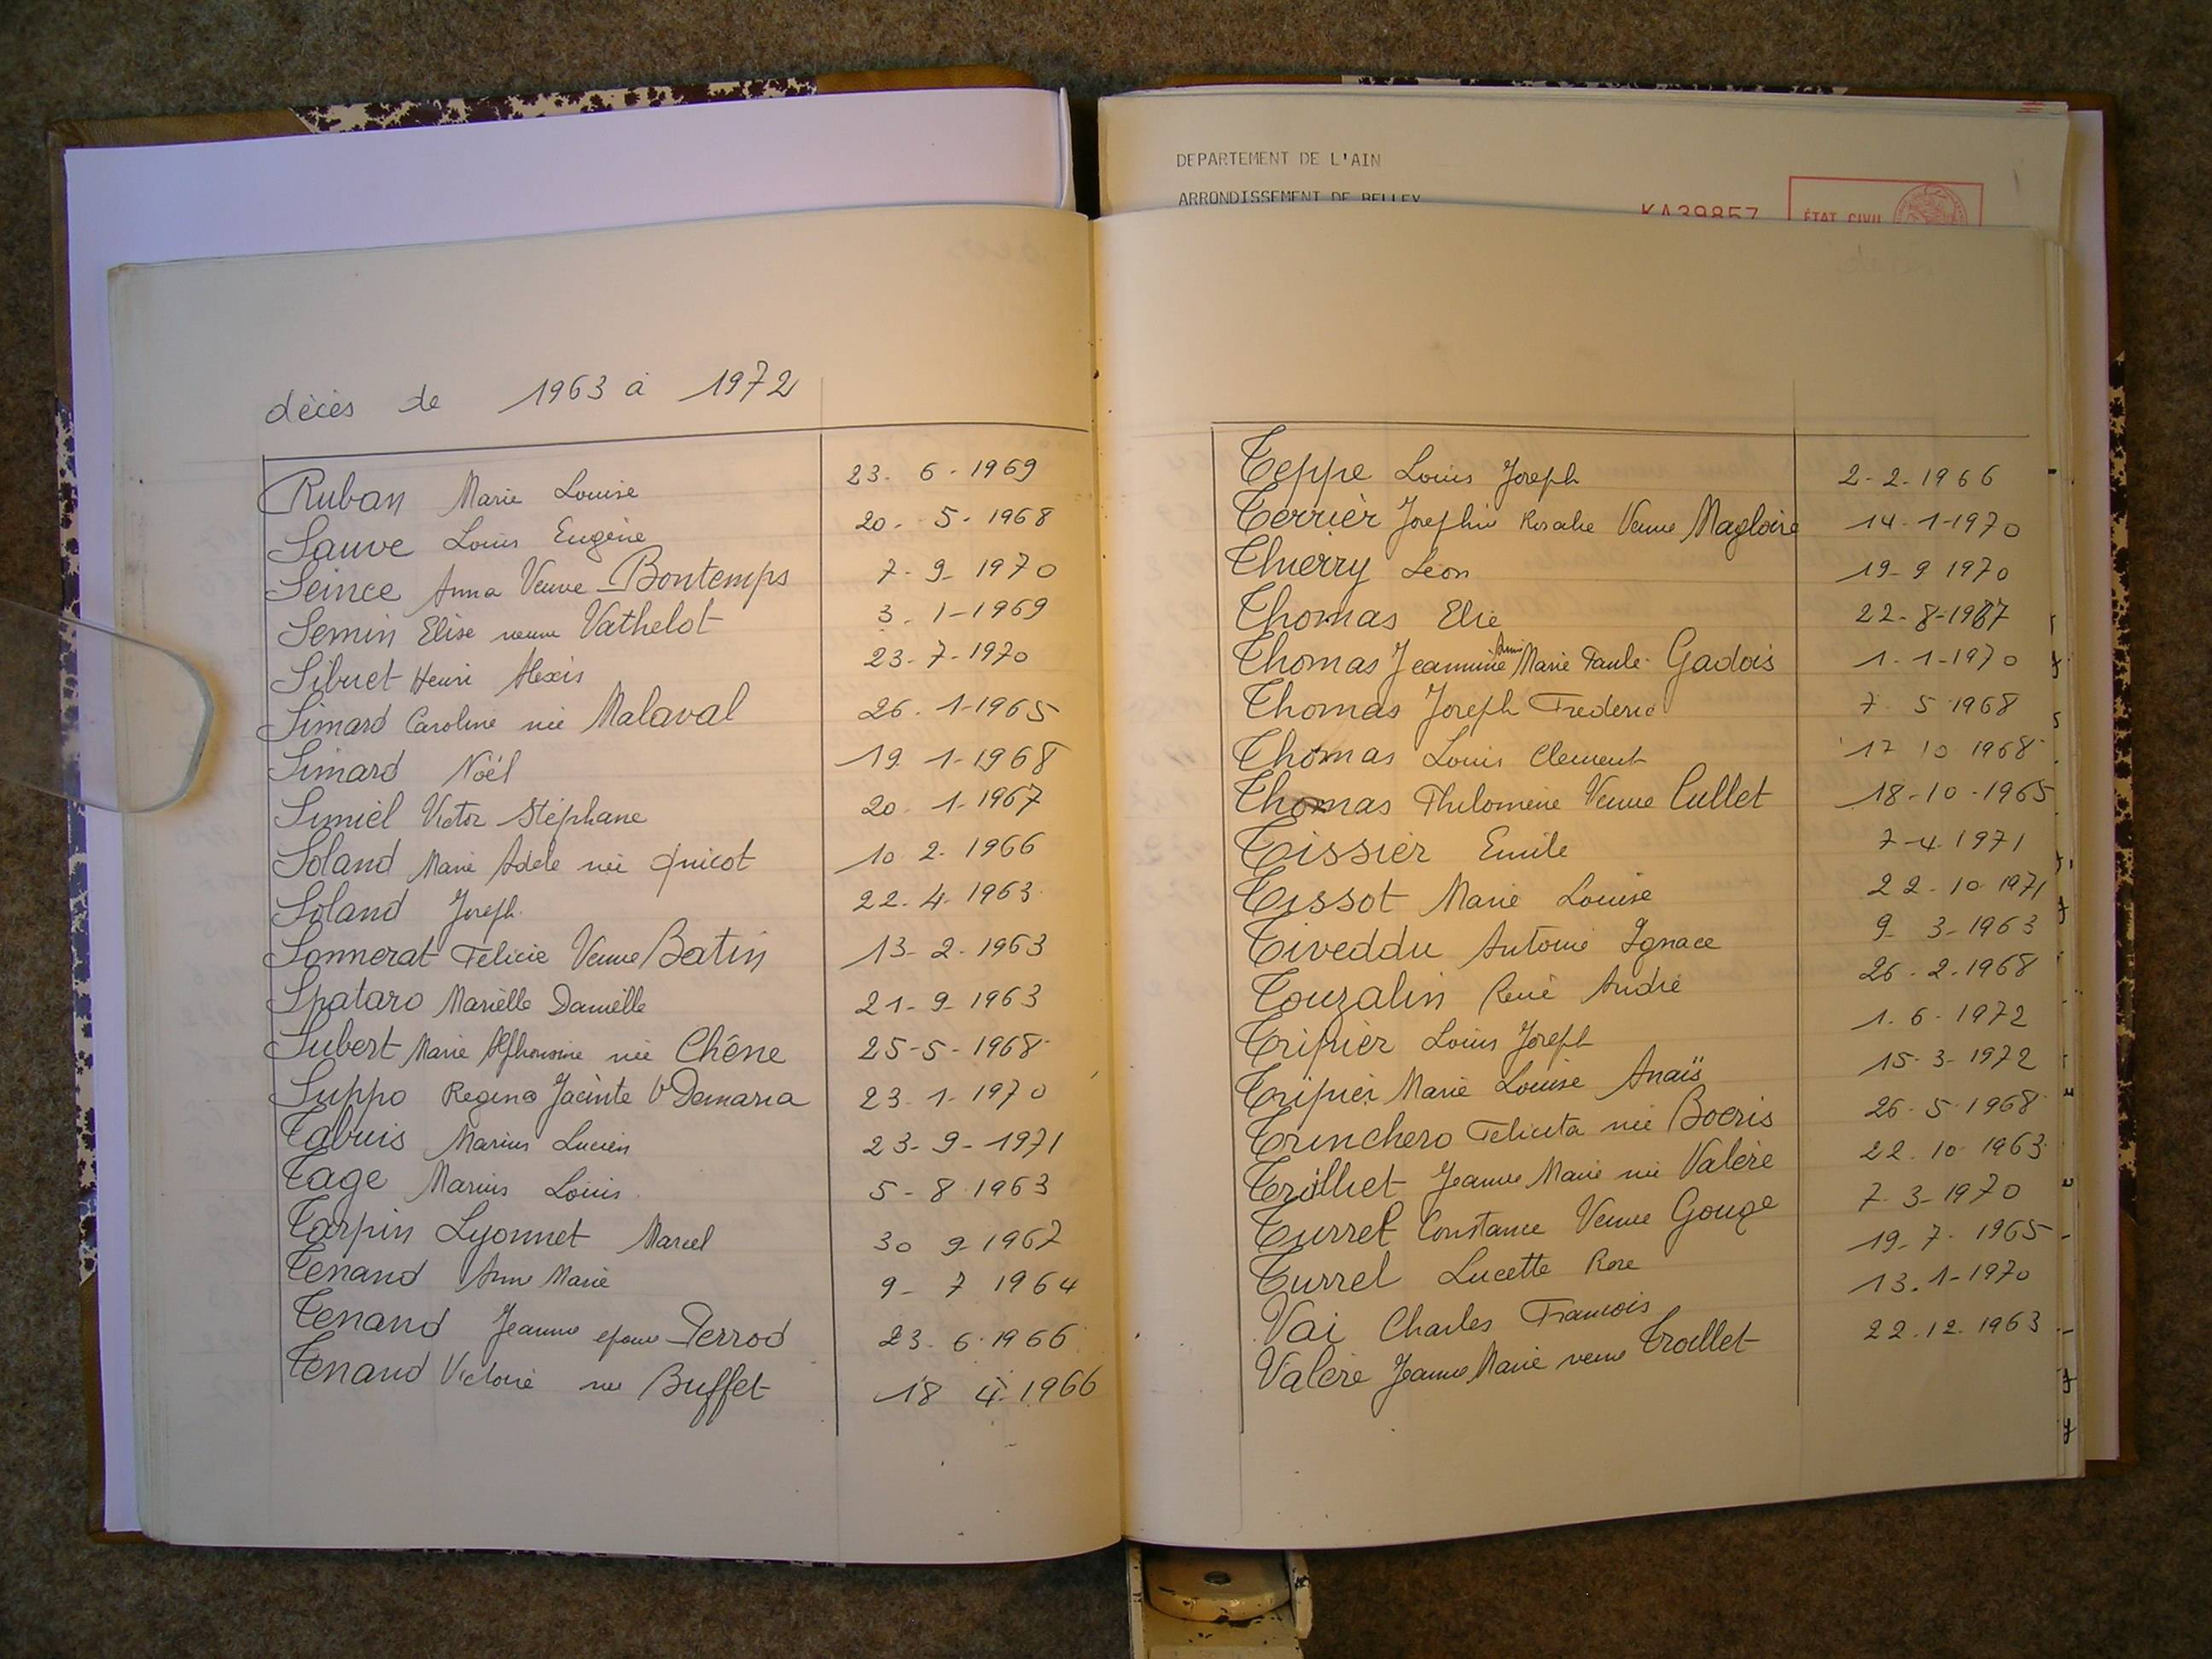 décès de 1963 à 1972
Ruban Marie Louise 23. 6 - 1969
Sauve Louis Eugène 20. 5. 1968
Seince Anna Veuve Bontemps 7- 9- 1970
Semin Elise veuve Vathelot 3. 1-1969
Sibuet Henri Alexis 23-7-1970
Simard Caroline née Malaval 26. 1-1965
Simard Noël 19. 1-1968
Simiél Victor Stéphane 20. 1-1967
Soland Marie Adele née 10 2. 1966
Soland Joseph 22. 4. 1963
Sonnerat Felicie Veuve Batin 13- 2. 1963
Spataro Marièlle Danièlle 21- 9- 1963
Subert Marie Alphonsine née Chêne 25-5-1968
Suppo Regina Jacinte V Damaria 23. 1. 1970
Tabuis Marius Lucien 23-9-1971
Tage Marius Louis 5-8 1963
Tarpin Lyonnet Marcel 30 9-1967
Tenand Anne Marie 9- 7 1964
Tenand Jeanne epouse Perrod 23. 6. 1966
Tenand Victorie née Buffet 18 4. 1966
DEPARTEMENT DE L'AIN
ARRONDISSEMENT DE BELLEY
KA39857
ÉTAT CIVIL
Teppe Louis Joseph 2-2-1966
Terrièr Josephine Rosalie Veuve Magloire 14-1-1970
Thierry Léon 19-9 1970
Thomas Elie 22-8-1967
Thomas Jeannine Marie Paule Gadois 1-1-1970
Thomas Joseph Frederic 7 5 1968
Thomas Louis Clement 17 10 1968
Thomas Philomène Veuve Cullet 18-10-1965
Tissièr Emile 7-4. 1971
Tissot Marie Louise 22-10-1971
Tiveddu Antoine Ignace 9- 3-1963
Touzalin René André 26. 2. 1968
Tripièr Louis Joseph 1. 6. 1972
Tripièr Marie Louise Anaïs 15-3-1972
Trinchero Felicita née Boeris 26-5-1968
Trolliet Jeanne Marie née Valère 22. 10 1963
Turrel Constance Veuve Gouge 7-3-1970
Turrel Lucette Rose 19-7. 1965
Vai Charles Francois 13. 1-1970
Valère Jeanne Marie veuve Trolliet 22. 12. 1963